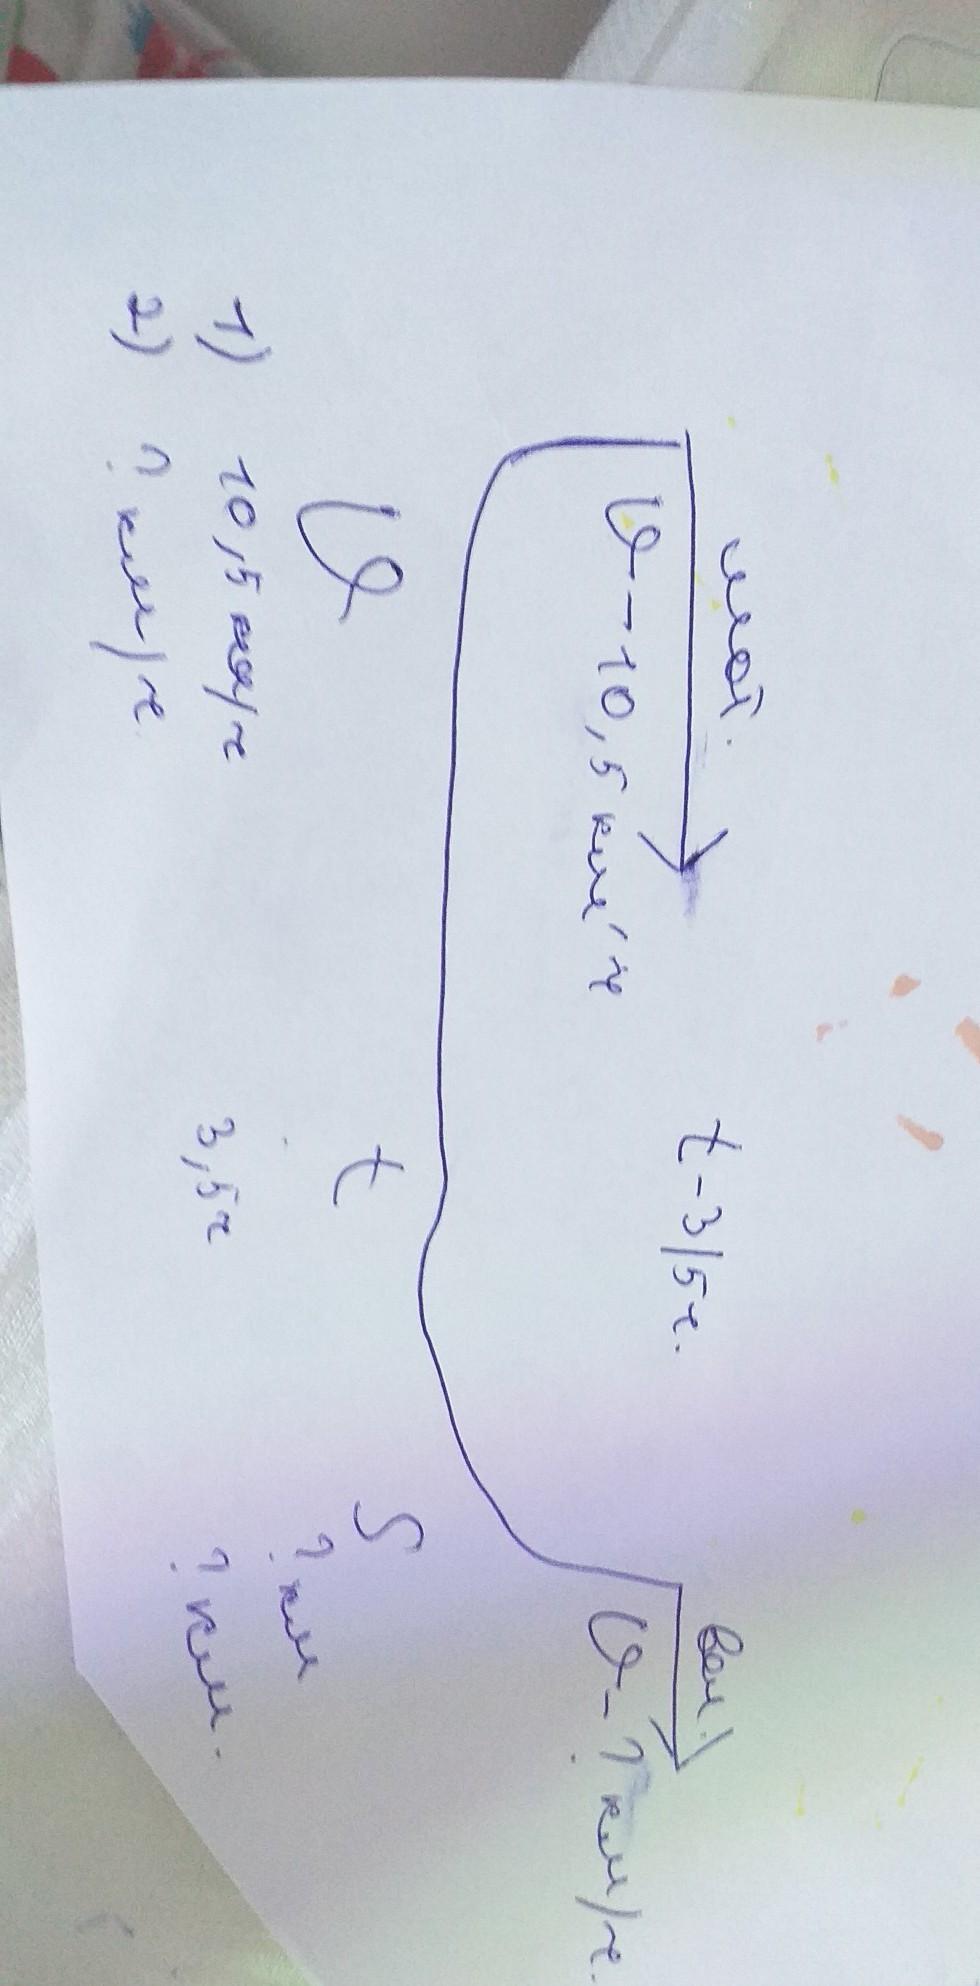 t-3,5ч.
вел.
V-10,5 км/ч
V-? км/ч.
V t S
1) 10,5 км/ч 3,5ч ? км
2) ? км/ч ? км.